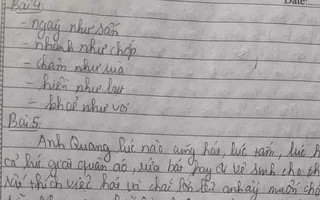 Date:
Bài 4
- ngay như sấn
- nhanh như chớp
- chậm như rùa
- hiền như bụt
- khoẻ như voi
Bài 5
Anh Quang lúc nào cũng hát, lúc tắm, lúc
cả khi giặt quần áo, sửa bát hay đi vệ sinh cho
rất thích việc hát và chai lớn lên anh ấy muốn